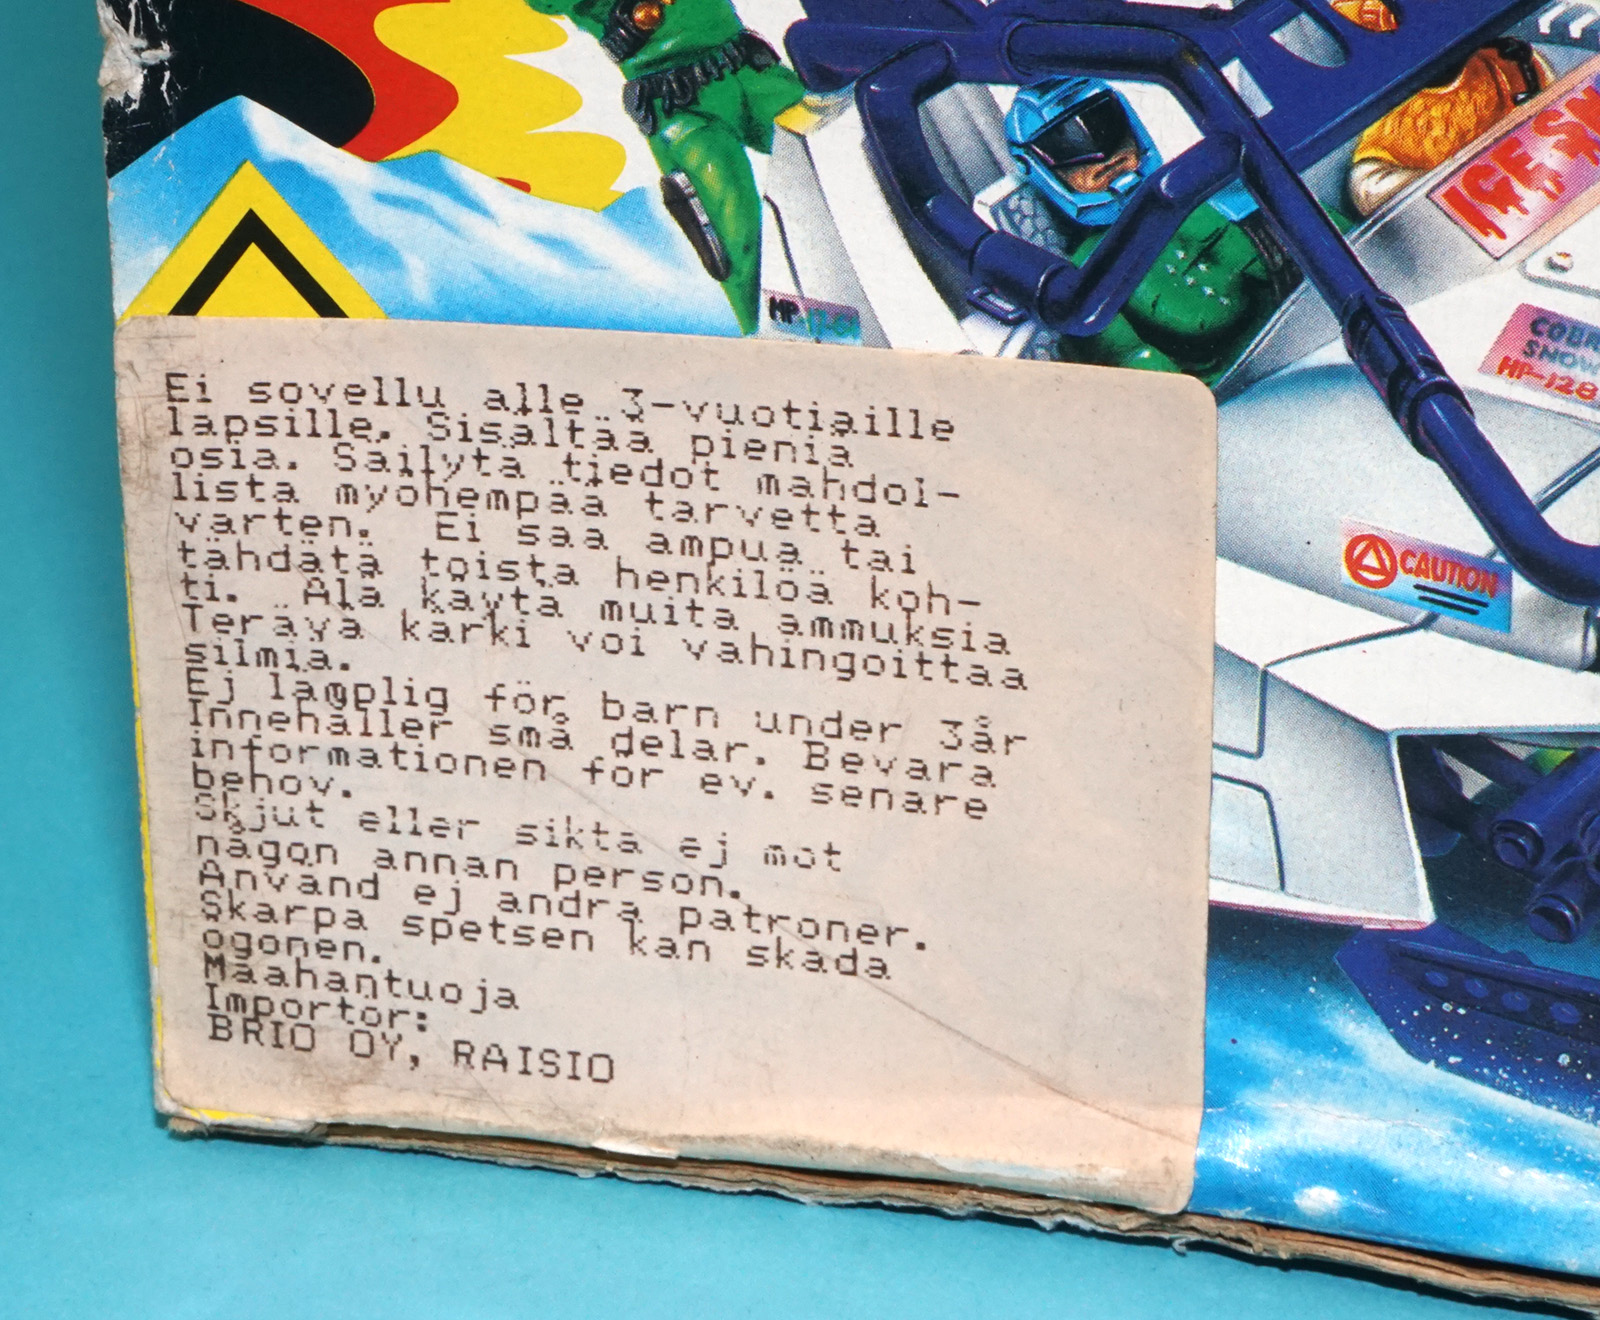 HP-17-01
ICE SN
COBR
SNOW
HP-128
CAUTION
Ei sovellu alle 3-vuotiaille
lapsille. Sisältää pieniä
osia. Säilytä tiedot mahdol-
lista myöhempää tarvetta
varten. Ei saa ampua tai
tähdätä toista henkilöä koh-
ti. Älä käytä muita ammuksia
Terävä kärki voi vahingoittaa
silmiä.
Ej lämplig för barn under 3år
Innehåller små delar. Bevara
informationen för ev. senare
behov.
Skjut eller sikta ej mot
någon annan person.
Använd ej andra patroner.
Skarpa spetsen kan skada
ögonen.
Maahantuoja
Importör:
BRIO OY, RAISIO